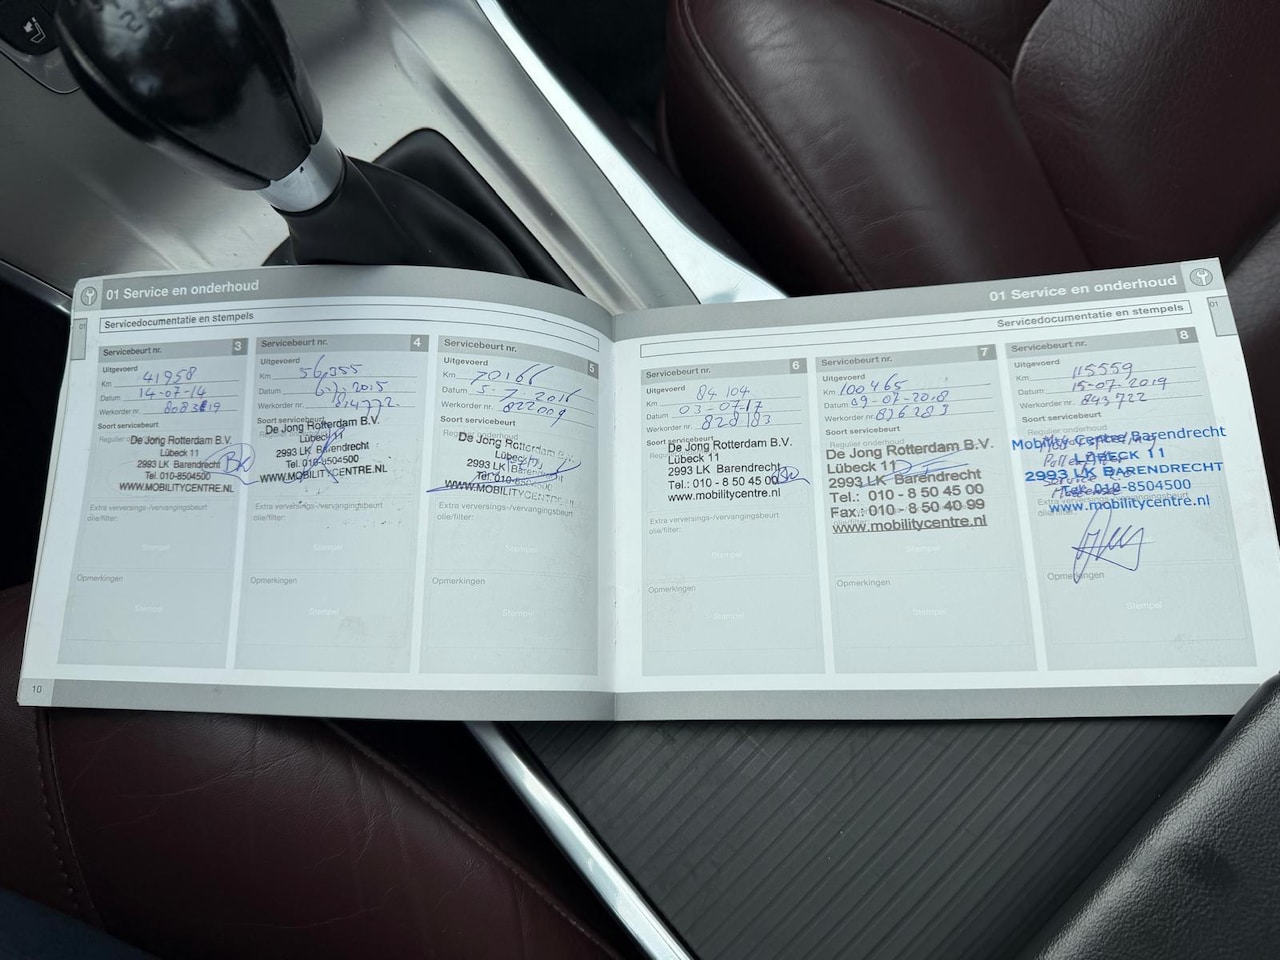 01 Service en onderhoud
01
Servicedocumentatie en stempels
Servicebeurt nr. 3
Uitgevoerd
Km 41958
Datum 14-07-14
Werkorder nr.
Soort servicebeurt
De Jong Rotterdam B.V.
Lübeck 11
2993 LK Barendrecht
Tel. 010-8504500
WWW.MOBILITYCENTRE.NL
Extra verversings-/vervangingsbeurt
olie/filter:
Stempel
Opmerkingen
Stempel
10
Servicebeurt nr. 4
Uitgevoerd
Km 56,355
Datum
Werkorder nr.
Soort servicebeurt
De Jong Rotterdam B.V.
Lübeck 11
2993 LK Barendrecht
Tel. 010-8504500
WWW.MOBILITYCENTRE.NL
Extra verversings-/vervangingsbeurt
olie/filter:
Stempel
Opmerkingen
Stempel
Servicebeurt nr. 5
Uitgevoerd
Km 70166
Datum 5-7-2016
Werkorder nr. 822009
Soort servicebeurt
De Jong Rotterdam B.V.
Lübeck
2993 LK Barendrecht
Tel. 010-8504500
WWW.MOBILITYCENTRE.NL
Extra verversings-/vervangingsbeurt
olie/filter:
Stempel
Opmerkingen
Stempel
01 Service en onderhoud
01
Servicedocumentatie en stempels
Servicebeurt nr. 6
Uitgevoerd
Km 84104
Datum 03-07-17
Werkorder nr. 828183
Soort servicebeurt
De Jong Rotterdam B.V.
Lübeck 11
2993 LK Barendrecht
Tel.: 010 - 8 50 45 00
www.mobilitycentre.nl
Extra verversings-/vervangingsbeurt
olie/filter:
Stempel
Opmerkingen
Stempel
Servicebeurt nr. 7
Uitgevoerd
Km 100465
Datum 09-07-2018
Werkorder nr. 836283
Soort servicebeurt
De Jong Rotterdam B.V.
Lübeck 11
2993 LK Barendrecht
Tel.: 010 - 8 50 45 00
Fax.: 010 - 8 50 40 99
www.mobilitycentre.nl
Stempel
Opmerkingen
Stempel
Servicebeurt nr. 8
Uitgevoerd
Km 115559
Datum 15-07-2019
Werkorder nr. 843722
Soort servicebeurt
Regulier onderhoud
Mobility Centre Barendrecht
LÜBECK 11
2993 LK BARENDRECHT
Tel. 010-8504500
www.mobilitycentre.nl
Opmerkingen
Stempel